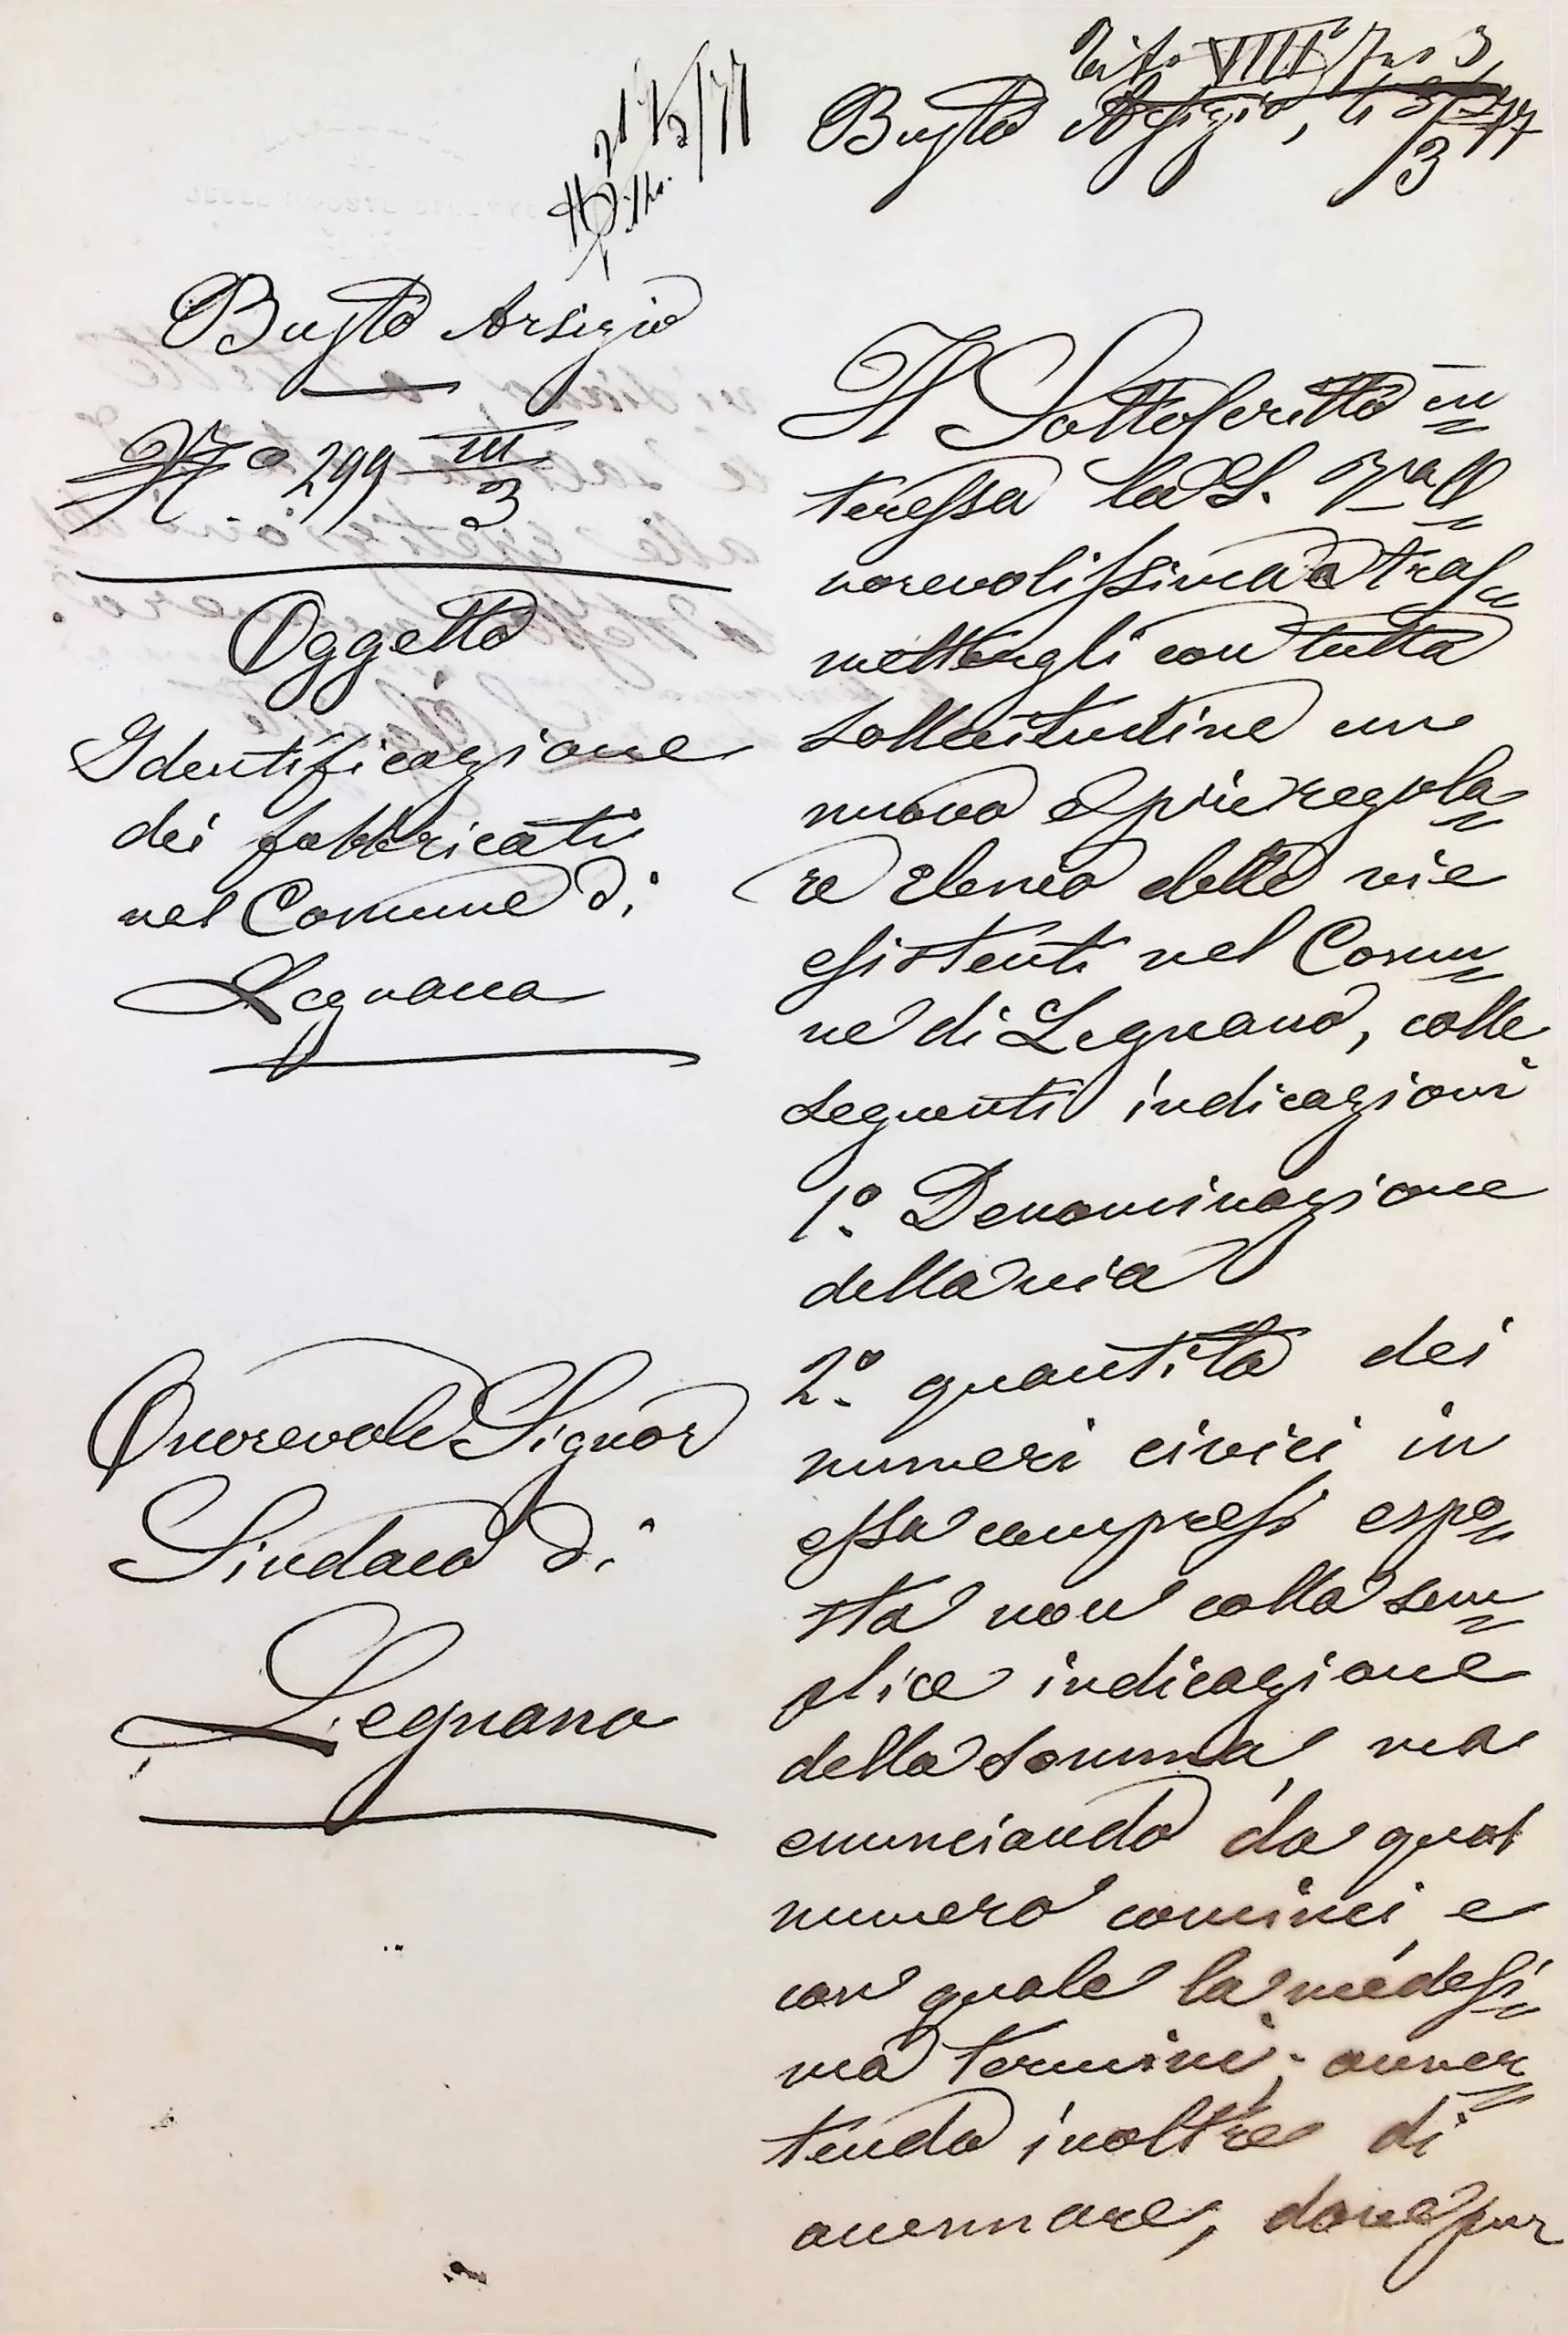 Tit. VIII
Busto Arsizio, li
3 77
Busto Arsizio
N.o 299 III
3
Oggetto
Identificazione
dei fabbricati
nel Comune di
Legnano
Onorevole Signor
Sindaco di
Legnano
Il Sottoscritto in=
teressa la S. V.a On=
norevolissima a tras=
mettergli con tutta
sollecitudine un
nuovo e più regola=
re elenco delle vie
esistenti nel Comu=
ne di Legnano, colle
seguenti indicazioni
1.o Denominazione
della via
2.o quantità dei
numeri civici in
essa compresi espo=
sta non colla sem=
plice indicazione
della somma, ma
enunciando da qual
numero cominci, e
con quale la medesi=
ma termini; avver=
tendo inoltre di
accennare, dove pur